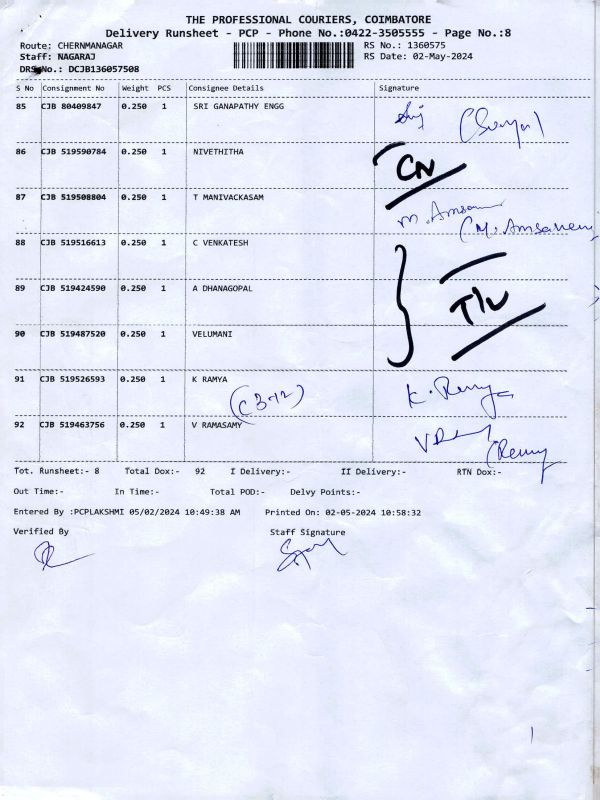 THE PROFESSIONAL COURIERS, COIMBATORE
Delivery Runsheet - PCP - Phone No.:0422-3505555 - Page No.:8
Route: CHERNMANAGAR RS No.: 1360575
Staff: NAGARAJ RS Date: 02-May-2024
DRS No.: DCJB136057508
S No Consignment No Weight PCS Consignee Details Signature
85 CJB 80409847 0.250 1 SRI GANAPATHY ENGG
86 CJB 519590784 0.250 1 NIVETHITHA CN
87 CJB 519508804 0.250 1 T MANIVACKASAM M. Amsa
(M. Amsaveni
88 CJB 519516613 0.250 1 C VENKATESH
89 CJB 519424590 0.250 1 A DHANAGOPAL T/L
90 CJB 519487520 0.250 1 VELUMANI
91 CJB 519526593 0.250 1 K RAMYA K. Remya
92 CJB 519463756 0.250 1 V RAMASAMY
(Remy
Tot. Runsheet:- 8 Total Dox:- 92 I Delivery:- II Delivery:- RTN Dox:-
Out Time:- In Time:- Total POD:- Delvy Points:-
Entered By :PCPLAKSHMI 05/02/2024 10:49:38 AM Printed On: 02-05-2024 10:58:32
Verified By Staff Signature